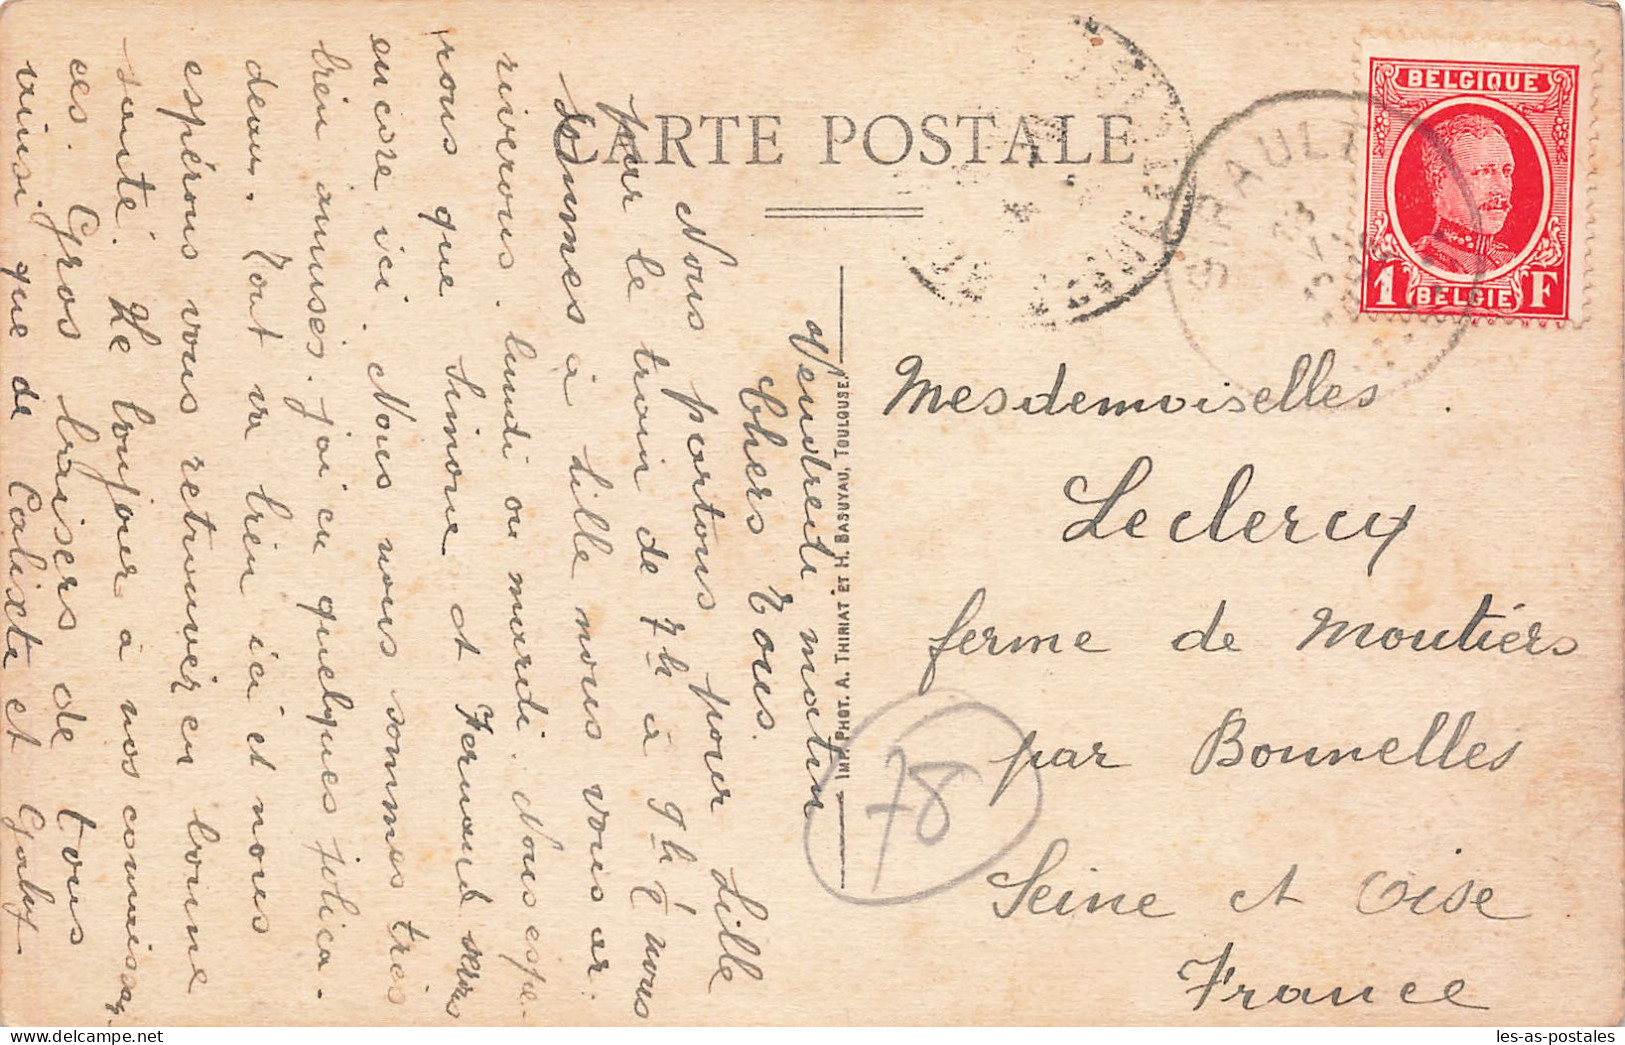 CARTE POSTALE
BELGIQUE
1 BELGIE F
SIRAULT
Vendredi matin
Chers Tous.
Nous partons pour Lille
par le train de 7h à 9h ¼ nous
sommes à Lille nous vous ar-
riverons lundi ou mardi. Nous espe-
rons que Simone et Fernand sera
encore ici. Nous nous sommes très
bien amusés. j'ai eu quelques jolica-
deau. Tout va bien ici et nous
espérons vous retrouver en bonne
santé. Le bonjour à nos connaissan-
ces. Gros baisers de tous
ainsi que de Calixte et Gaby.
IMP. PHOT. A. THIRIAT ET H. BASUYAU, TOULOUSE.
Mesdemoiselles
Leclercq
ferme de Moutiers
par Bonnelles
Seine et Oise
France
78
les-as-postales